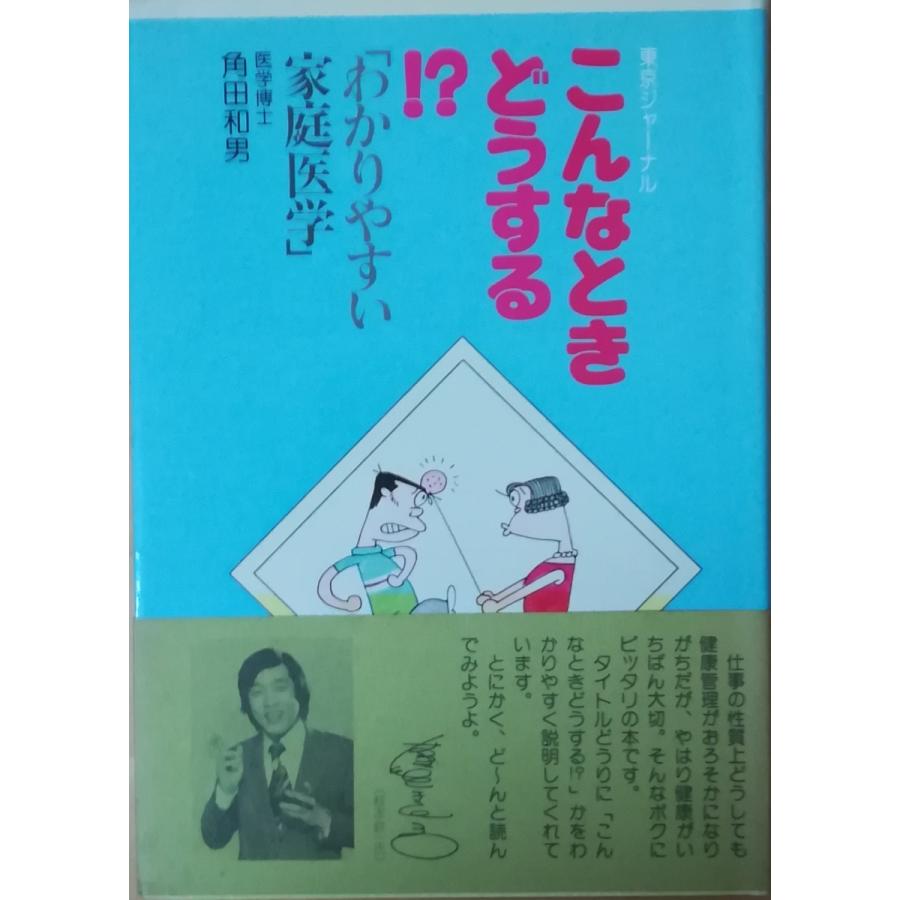 東京ジャーナル
こんなとき
どうする
!?
「わかりやすい
家庭医学」
医学博士
角田和男
仕事の性質上どうしても
健康管理がおろそかになり
がちだが、やはり健康がい
ちばん大切。そんなボクに
ピッタリの本です。
タイトルどうりに「こん
なときどうする!?」かをわ
かりやすく説明してくれて
います。
とにかく、ど〜んと読ん
でみようよ。